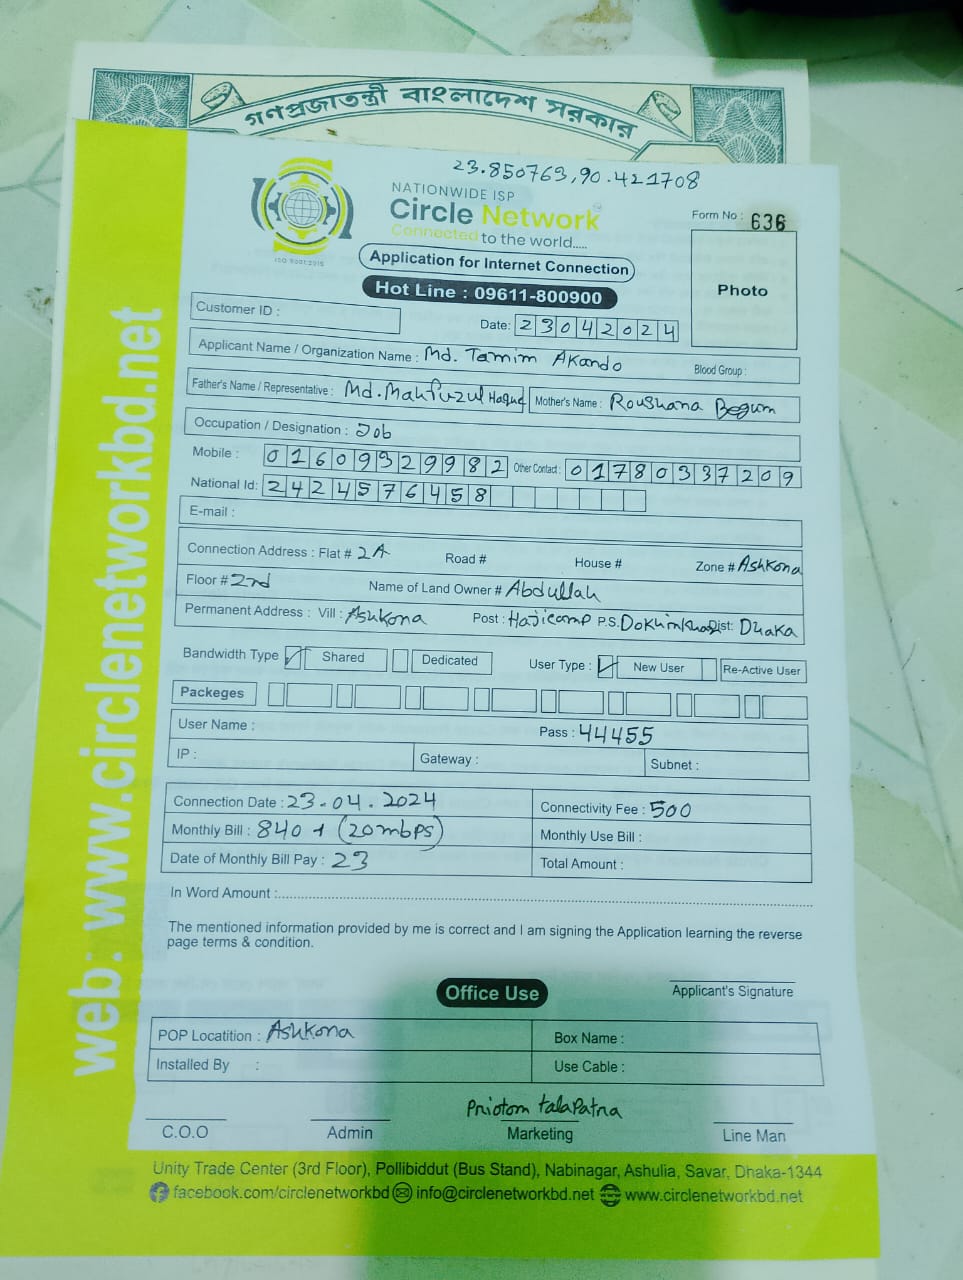 গণপ্রজাতন্ত্রী বাংলাদেশ সরকার
23.850763,90.421708
NATIONWIDE ISP
Circle Network
Connected to the world.....
ISO 9001:2015
Form No : 636
Application for Internet Connection
Photo
Hot Line : 09611-800900
Customer ID :
Date: 23042024
Applicant Name / Organization Name : Md. Tamim Akando Blood Group :
Father's Name / Representative : Md. Mahfuzul Haque Mother's Name : Roushana Begum
Occupation / Designation : Job
Mobile : 01609329982 Other Contact : 01780337209
National Id: 2424576458
E-mail :
Connection Address : Flat # 2A Road # House # Zone # Ashkona
Floor # 2nd Name of Land Owner # Abdullah
Permanent Address : Vill : Ashkona Post : Hajicamp P.S. Dist: Dhaka
Bandwidth Type Shared Dedicated User Type : New User Re-Active User
Packeges
User Name : Pass : 44455
IP : Gateway : Subnet :
Connection Date : 23.04.2024 Connectivity Fee : 500
Monthly Bill : 840 + (20mbps) Monthly Use Bill :
Date of Monthly Bill Pay : 23 Total Amount :
In Word Amount :
The mentioned information provided by me is correct and I am signing the Application learning the reverse
page terms & condition.
Applicant's Signature
Office Use
POP Locatition : Ashkona Box Name :
Installed By : Use Cable :
Priotom talapatra
C.O.O Admin Marketing Line Man
Unity Trade Center (3rd Floor), Pollibiddut (Bus Stand), Nabinagar, Ashulia, Savar, Dhaka-1344
facebook.com/circlenetworkbd info@circlenetworkbd.net www.circlenetworkbd.net
web: www.circlenetworkbd.net